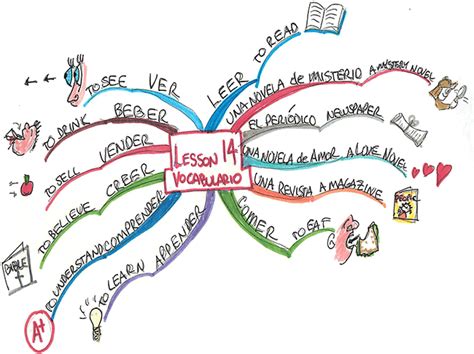 LESSON 14
VOCABULARIO
LEER TO READ
UNA NOVELA de MISTERIO A MYSTERY NOVEL
EL PERIÓDICO NEWSPAPER
UNA NOVELA de AMOR A LOVE NOVEL
UNA REVISTA A MAGAZINE
PEOPLE
COMER TO EAT
TO LEARN APRENDER
TO UNDERSTAND COMPRENDER
A+
TO BELIEVE CREER
BIBLE
TO SELL VENDER
TO DRINK BEBER
TO SEE VER